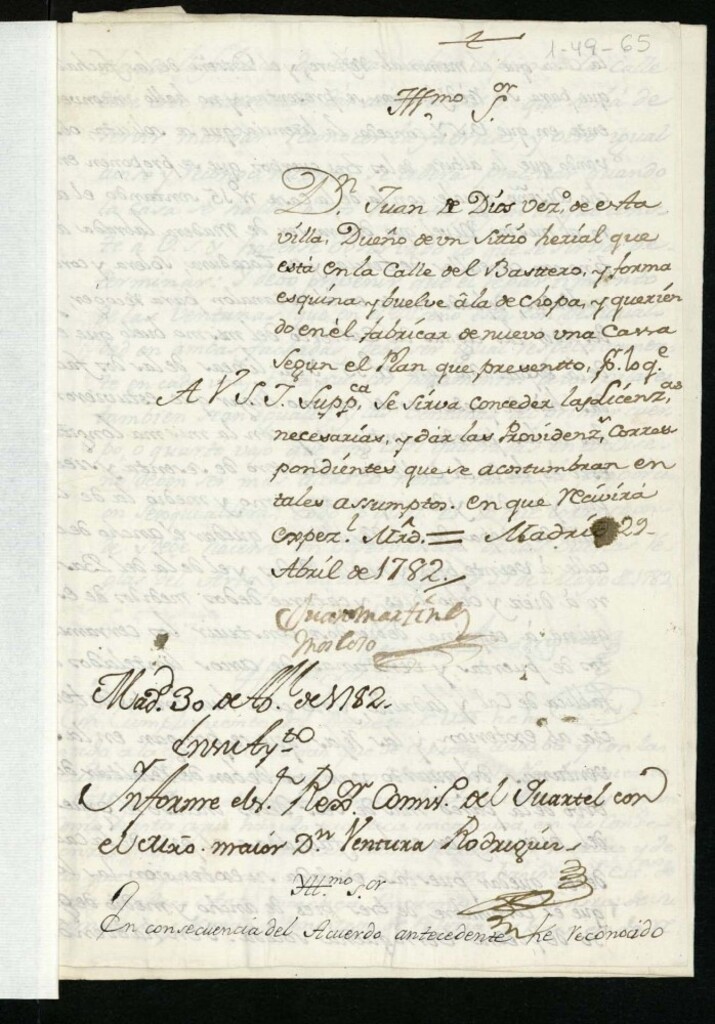 1-49-65
Yllmo Sor
Dn Juan de Dios vezo. de esta
villa, Dueño de un sittio herial que
está en la Calle del Basttero, y forma
esquina y buelve â la de Chopa, y querien
do en èl fabricar de nuevo una Cassa
segun el Plan que presentto, pr. lo qe.
A V.S.I. Suppca. se sirva conceder las Licenzas
necesarias, y dar las Providenzs. Corres
pondientes que se acostumbran en
tales assumptos. en que Recivirá
Mrd. = Madrid 29
Abril de 1782.
Juan Martin
Madd. 30 de Abl. de 1782.
En su Aytto
Informe el Sr. Rexor. Comiso. del Quartel con
el Mro. maior Dn Ventura Rodriguez
Yllmo Sor
En consecuencia del Acuerdo antecedente he reconocido